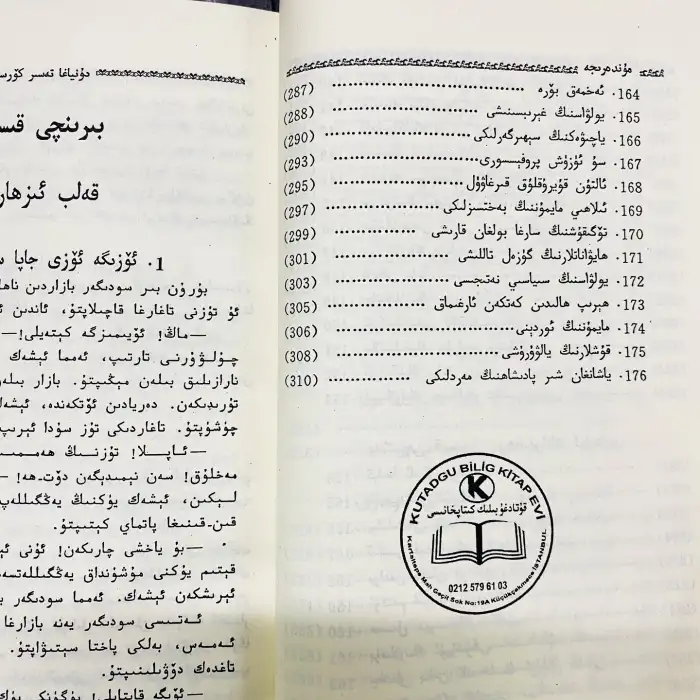 مۇندەرىجە
164. ئەخمەق بۆرە (287)
165. يولۋاسنىڭ غېرىبسىنىشى (288)
166. ياچىۋەكنىڭ سېھىرگەرلىكى (290)
167. سۇ ئۈزۈش پروفېسسورى (293)
168. ئالتۇن قۇيرۇقلۇق قىرغاۋۇل (295)
169. ئىلاھىي مايمۇننىڭ بەختسىزلىكى (297)
170. تۆگىقۇشنىڭ سارغا بولغان قارىشى (299)
171. ھايۋاناتلارنىڭ گۈزەل تاللىشى (301)
172. يولۋاسنىڭ سىياسىي نەتىجىسى (303)
173. ھېرىپ ھالىدىن كەتكەن ئارغىماق (305)
174. مايمۇننىڭ ئوردېنى (306)
175. قۇشلارنىڭ يالۋۇرۇشى (308)
176. ياشانغان شىر پادىشاھنىڭ مەردلىكى (310)
KUTADGU BİLİG KİTAP EVİ
K
قۇتادغۇبىلىك كىتاپخانىسى
0212 579 61 03
Kartaltepe Mah Geçit Sok No:19A Küçükçekmece İSTANBUL
دۇنياغا تەسىر كۆرس
بىرىنچى قىس
قەلب ئىزھار
1. ئۆزىگە ئۆزى جاپا س
بۇرۇن بىر سودىگەر بازاردىن ناھا
ئۇ تۇزنى تاغارغا قاچىلاپتۇ، ئاندىن ئ
—ماڭ! ئۆيىمىزگە كېتەيلى!—
چۇلۋۇرنى تارتىپ، ئەمما ئېشەك
نارازىلىق بىلەن مېڭىپتۇ. بازار بىلەن
تۇرىدىكەن. دەريادىن ئۆتكەندە، ئېشە
چۈشۈپتۇ. تاغاردىكى تۇز سۇدا ئېرىپ
—ئاپلا! تۇزنىڭ ھەممىس
مەخلۇق! سەن نېمىدېگەن دۆت-ھە!
لېكىن، ئېشەك يۈكنىڭ يەڭگىللەپ
قىن-قىنىغا پاتماي كېتىپتۇ.
—بۇ ياخشى چارىكەن! ئۇنى ئې
قېتىم يۈكنى مۇشۇنداق يەڭگىللەتسە
ئېرىشكەن ئېشەك. ئەمما سودىگەر ب
ئەتىسى سودىگەر يەنە بازارغا
ئەمەس، بەلكى پاختا سېتىۋاپتۇ.
تاغدەك دۆۋىلىنىپتۇ.
—ئۆيگە قايتايلى! بۈگۈنكى يۈك